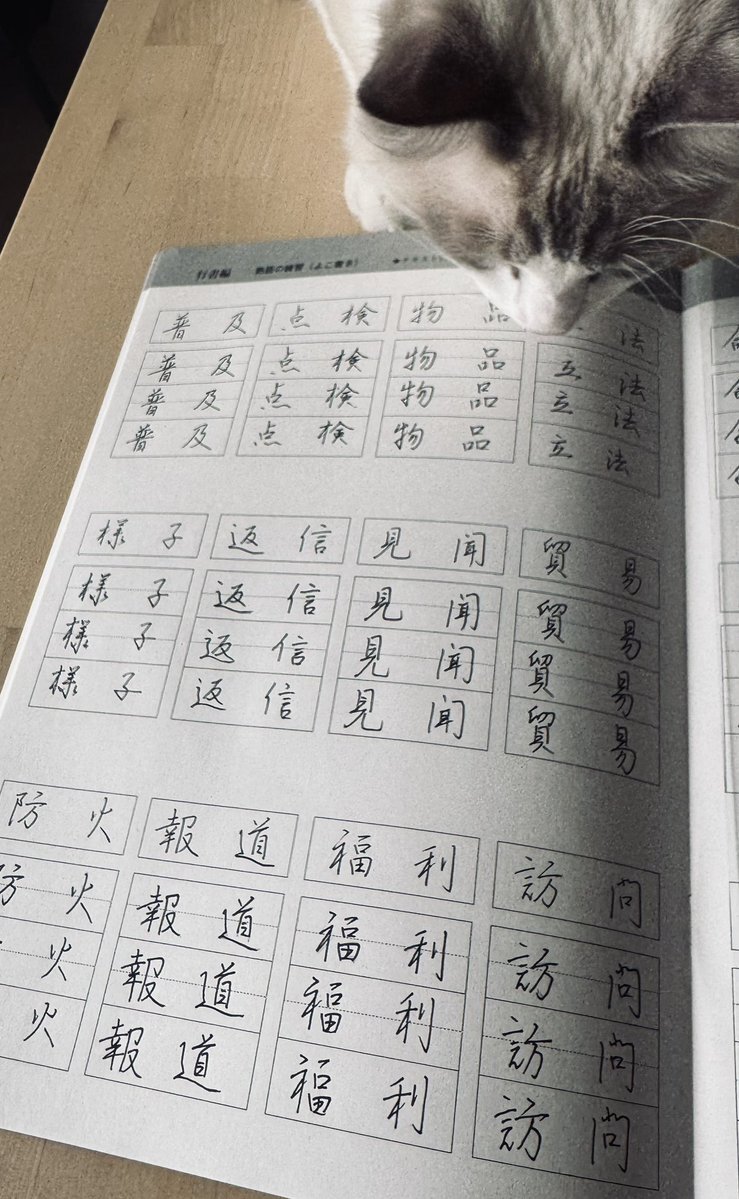 行書編 熟語の練習(よこ書き) ◆テキスト
普及 点検 物品 法
普及 点検 物品 立法
普及 点検 物品 立法
普及 点検 物品 立法
様子 返信 見聞 貿易
様子 返信 見聞 貿易
様子 返信 見聞 貿易
様子 返信 見聞 貿易
防火 報道 福利 訪問
防火 報道 福利 訪問
火 報道 福利 訪問
火 報道 福利 訪問